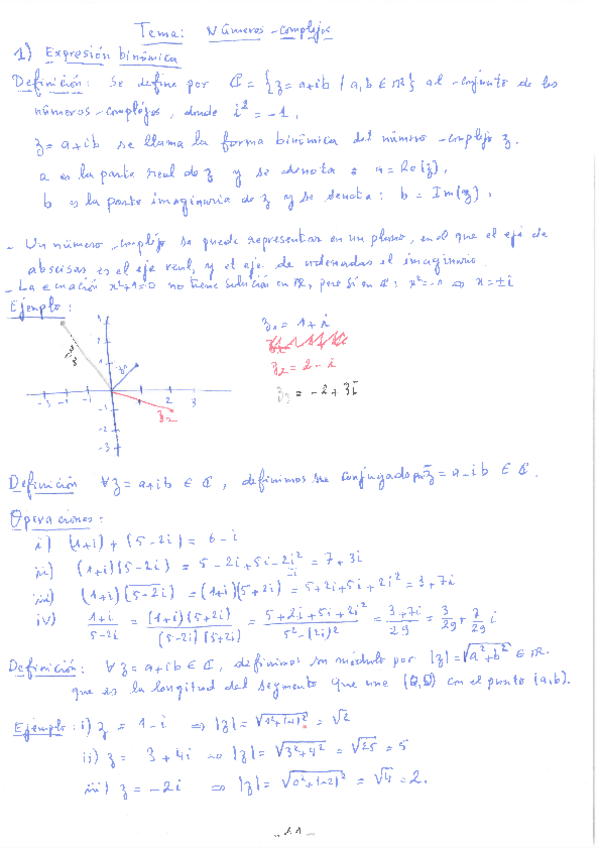 Tema: Números complejos
1) Expresión binómica
Definición: Se define por ℂ = {z = a+ib / a,b ∈ ℝ} al conjunto de los
números complejos, donde i² = -1.
z = a+ib se llama la forma binómica del número complejo z.
a es la parte real de z y se denota: a = Re(z),
b es la parte imaginaria de z y se denota: b = Im(z),
- Un número complejo se puede representar en un plano, en el que el eje de
abscisas es el eje real, y el eje de ordenadas el imaginario.
- La ecuación x²+1=0 no tiene solución en ℝ, pero sí en ℂ: x²=-1 ⇔ x=±i
Ejemplo:
z₁ = 1+i
z₂ = 2-i
z₃ = -2+3i
3
2
1
-3 -2 -1 1 2 3
-1
-2
-3
z₃
z₁
z₂
Definición ∀z = a+ib ∈ ℂ, definimos su conjugado por z̄ = a-ib ∈ ℂ.
Operaciones:
i) (1+i) + (5-2i) = 6-i
ii) (1+i)(5-2i) = 5-2i+5i-2i² = 7+3i
iii) (1+i)(5-2i)‾ = (1+i)(5+2i) = 5+2i+5i+2i² = 3+7i
iv) (1+i)/(5-2i) = (1+i)(5+2i)/(5-2i)(5+2i) = (5+2i+5i+2i²)/(5²-(2i)²) = (3+7i)/29 = 3/29 + 7/29 i
Definición: ∀z = a+ib ∈ ℂ, definimos su módulo por |z| = √(a²+b²) ∈ ℝ.
que es la longitud del segmento que une (0,0) con el punto (a,b).
Ejemplo: i) z = 1-i ⇒ |z| = √(1²+(-1)²) = √2
ii) z = 3+4i ⇒ |z| = √(3²+4²) = √25 = 5
iii) z = -2i ⇒ |z| = √(0²+(-2)²) = √4 = 2.